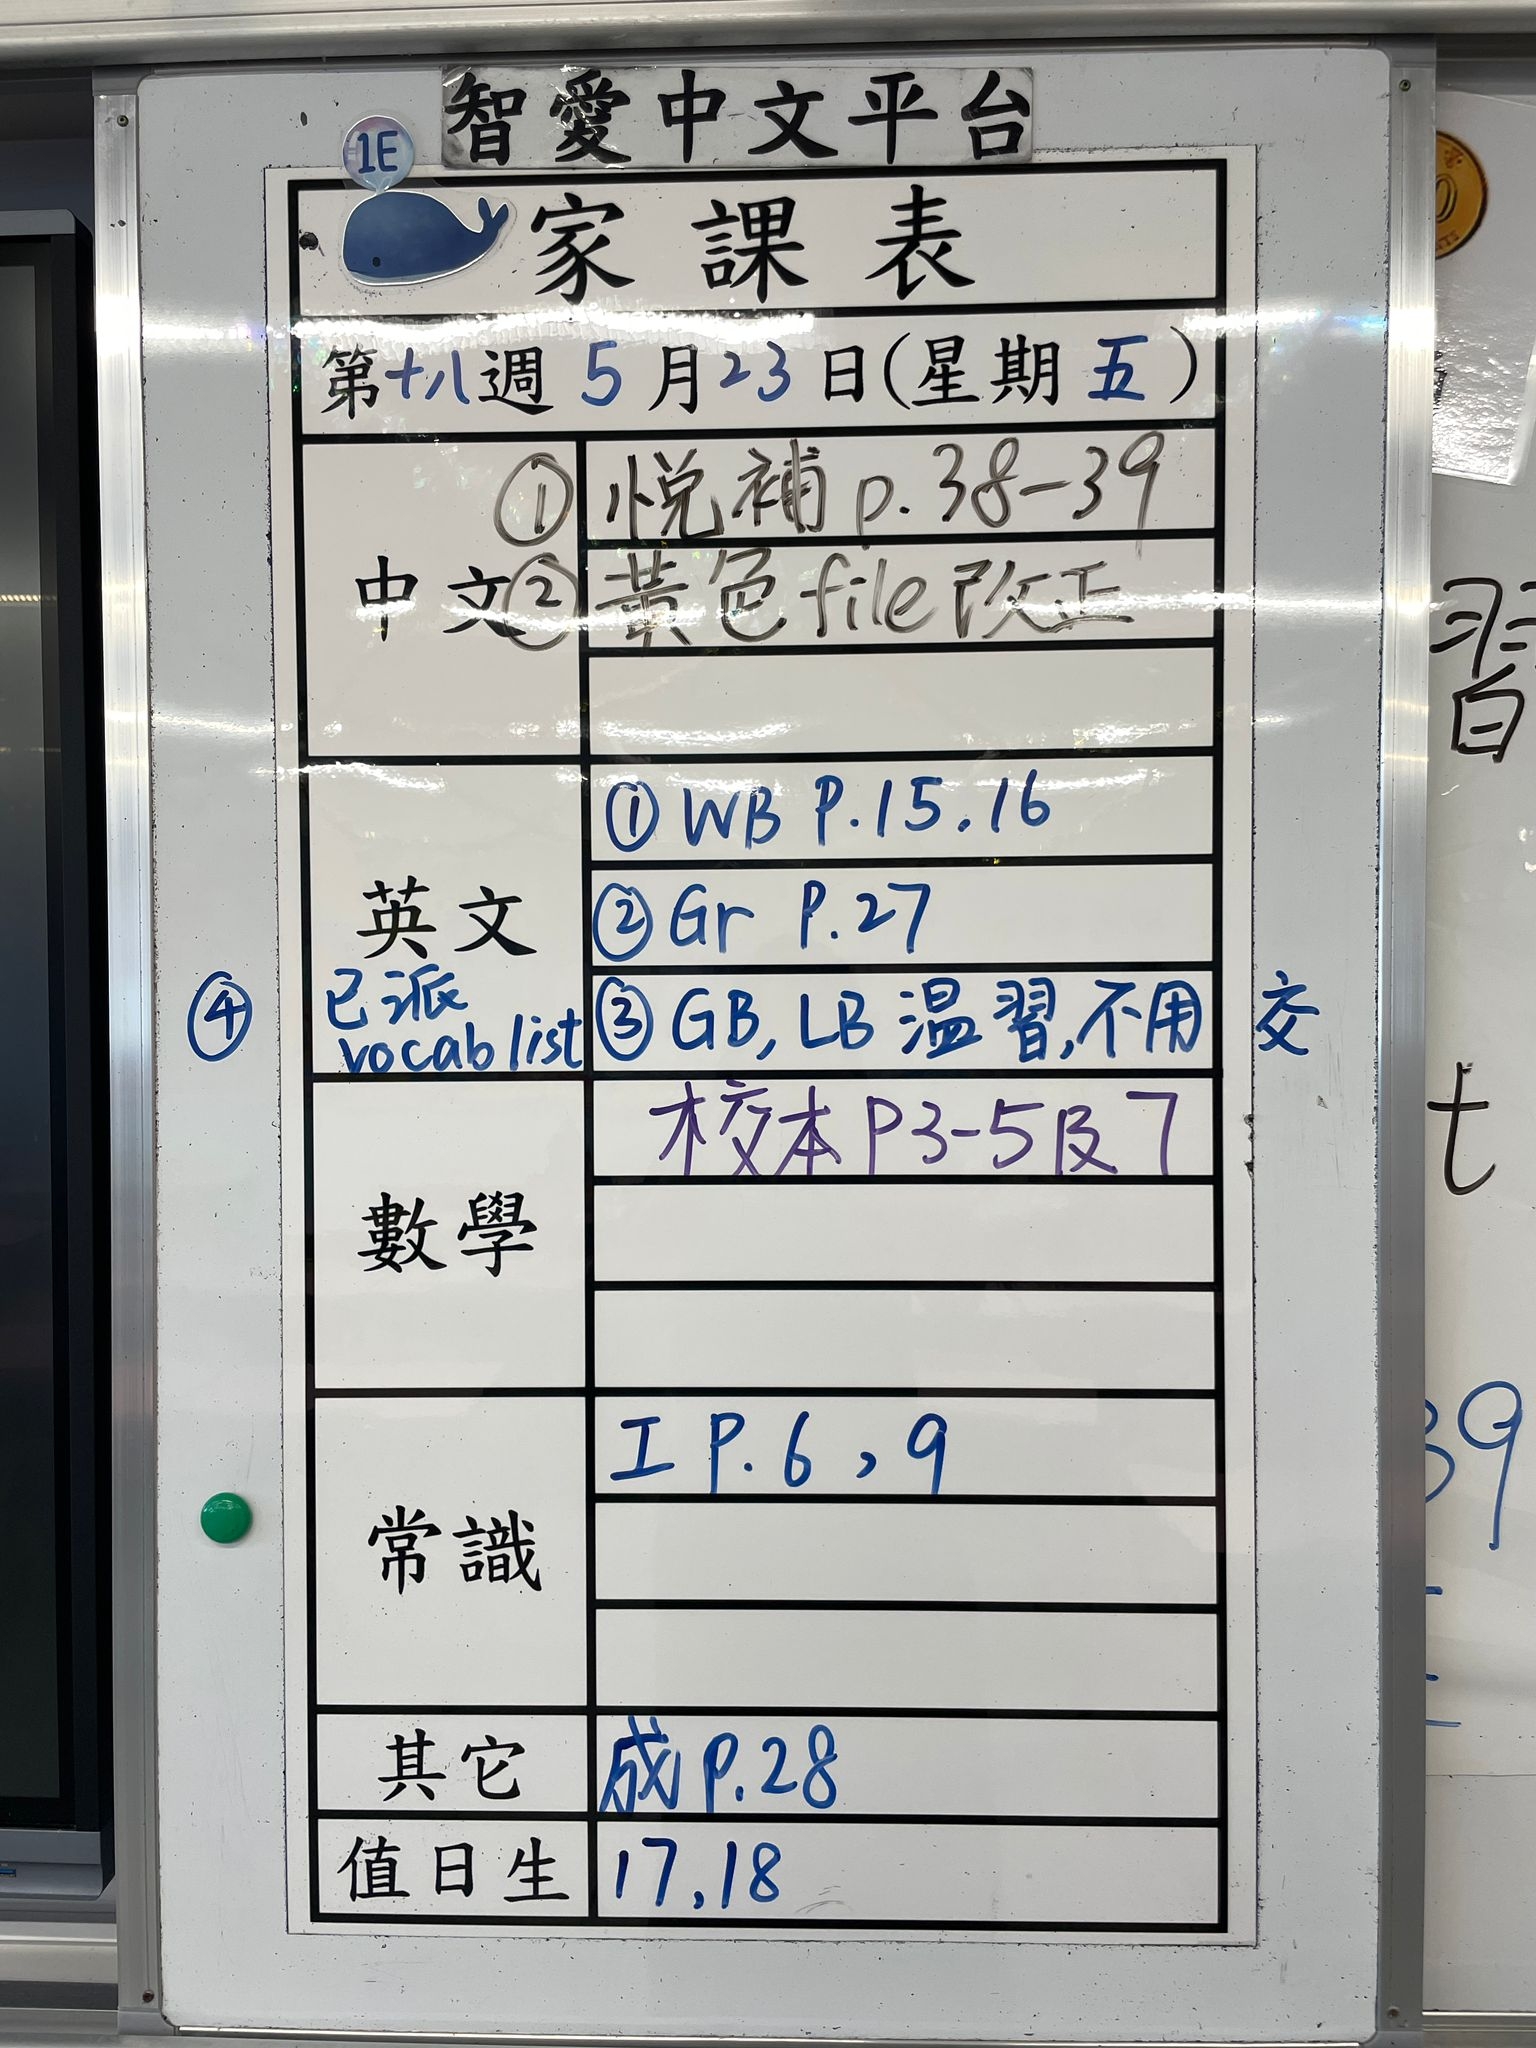 智愛中文平台
1E
家課表
第十八週 5月23日(星期五)
中文
① 悅補 p.38-39
② 黃色file改正
英文
① WB P.15,16
② Gr P.27
③ GB, LB 溫習,不用交
④ 已派
vocab list
數學
校本 P3-5及7
常識
工 P.6,9
其它
成 P.28
值日生
17,18
習
t
39